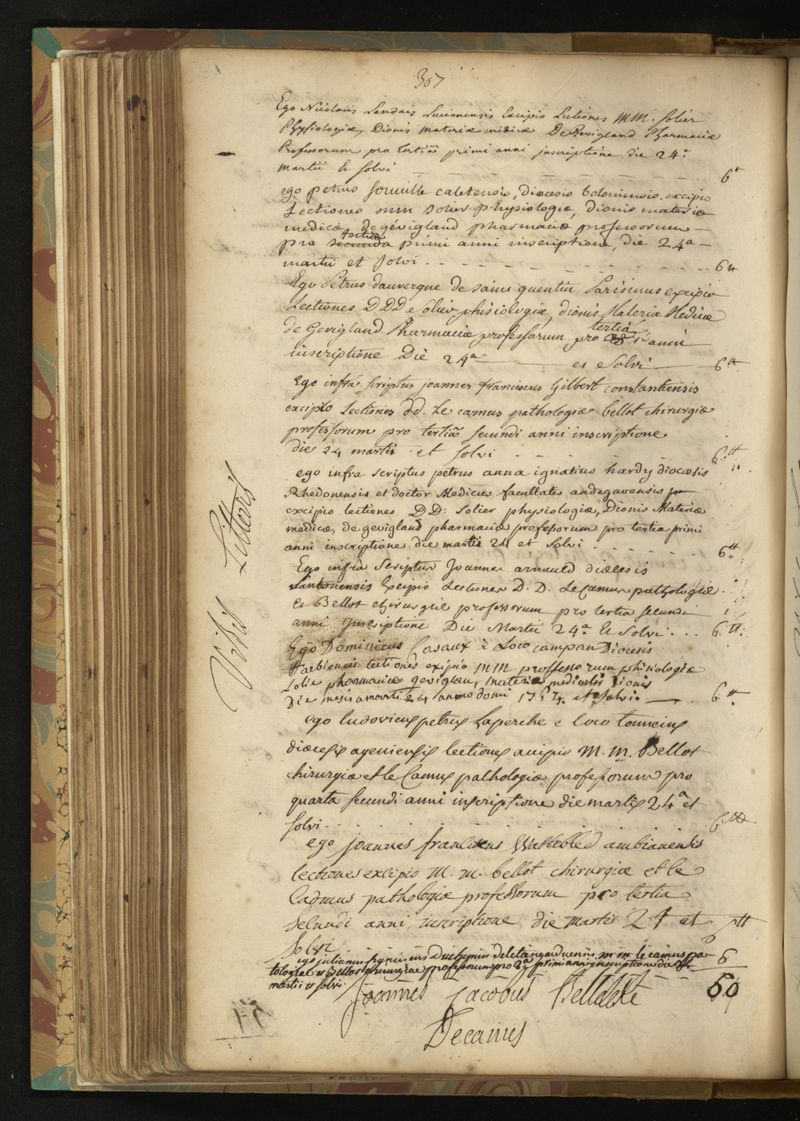 307
Ego Nicolaus Landais Lucionensis Excipio Lectiones MM. Solier
Physiologiæ, Dionis materiæ medicæ De Gevigland Pharmaciæ
Professorum pro tertiâ primi anni inscriptione die 24.ᵃ
Martii Et solvi 6 ʰ
ego petrus Souville caletensis, diœcesis boloniensis, excipio
Lectiones mm Solier physiologiæ, dionis materiæ
medicæ, de gévigland pharmaciæ professorum
tertia
pro secunda primi anni inscriptione, die 24ᵃ
martii et solvi 6 ʰ
Ego Petrus dauvergne de saint quentin Parisinus excipio
Lectiones DDD e Solier phisiologiæ, dionis Materiæ Medicæ
tertiâ
de Gevigland Pharmaciæ professorum pro anni
inscriptione Die 24ᵃ et Solvi 6 ᵗᵗ
Ego infra scriptus joannes franciscus Gilbert constantiensis
excipio Lectiones dd. Le camus pathologiæ bellot chirurgiæ
professorum pro tertiâ secundi anni inscriptione
die 24 martis et solvi 6 ᵗᵗ
ego infra scriptus petrus anna ignatius hardy diocœsis
Rhedonensis et doctor Medicus facultatis andegavensis
excipio lectiones D.D: Solier physiologiæ, Dionis Materiæ
medicæ, de gevigland pharmaciæ professorum pro tertia primi
anni inscriptione die martii 24 et Solvi 6 ᵗᵗ
Ego infra Scriptus Joannes arnault diœcesis
Santonensis Excipio Lectiones D. D. Le Camus pathologiæ
Et Bellot chirurgiæ professorum pro tertia secundi
anni Inscriptione Die Martii 24.ᵃ Et Solvi 6 ᵗᵗ
Ego Dominicus Casaux è Loco campan Diocesis
Tarbiensis lectiones exipio MM professorum phisiologiæ
Solie pharmaciæ geviglan, materiæ medicalis Dionis
Die mesis martii 24 anno domi 1774 et solvi 6 ᵗᵗ
ego ludovicus petrus Laperche e loco
diœcesis ageniensis lectiones accipio M. m. Bellot
chirurgiæ et le Camus pathologiæ professorum pro
quarta secundi anni inscriptione die martis 24ᵃ et
solvi 6 ᵗᵗ
ego joannes franciscus Wattebled ambianensis
lectiones excipio M. m. bellot chirurgiæ et le
Cadmus pathologiæ professorum pro tertia
secundi anni inscriptione die martis 24 et
solvi
ego julianus m m le camus pa-
tologiæ et Bellot chirurgiæ professorum pro 2ᵃ primi anni inscriptione die 24
martii et solvi 6
Joannes Jacobus Belleteste
Decanus
60
Visis Litteris